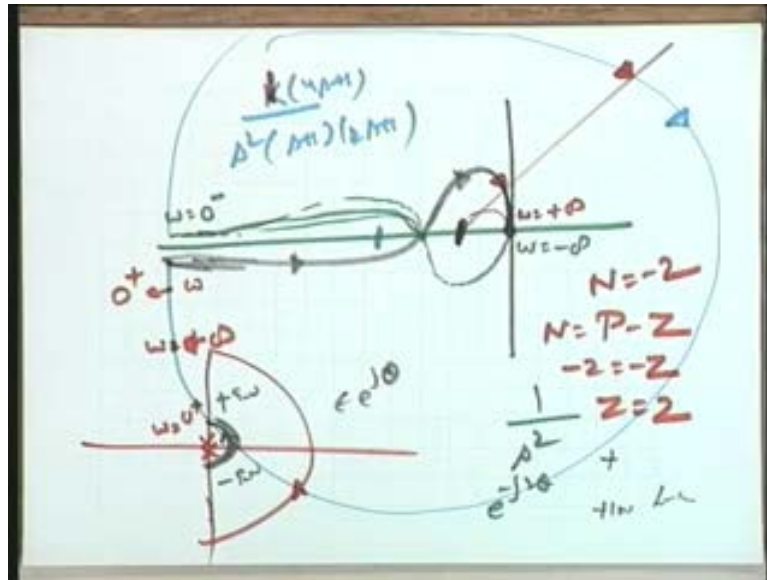 k(4s+1)
s²(s+1)(2s+1)
ω=0⁻
ω=+∞
ω=-∞
0⁺ ← ω
N=-2
N=P-Z
-2=-Z
Z=2
ω=+∞
ω=0⁺
εe^{jθ}
1
s²
e^{-j2θ}
+